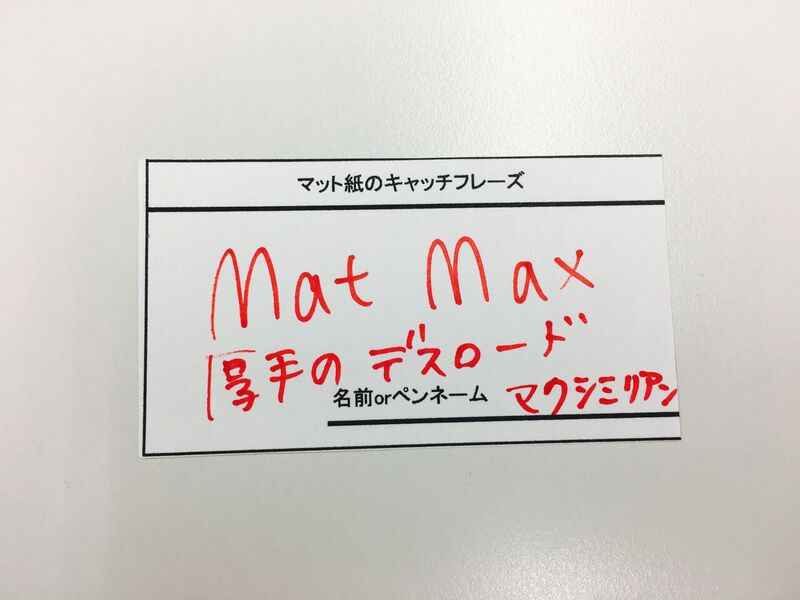 マット紙のキャッチフレーズ
Mat Max
厚手のデスロード
名前orペンネーム マクシミリアン